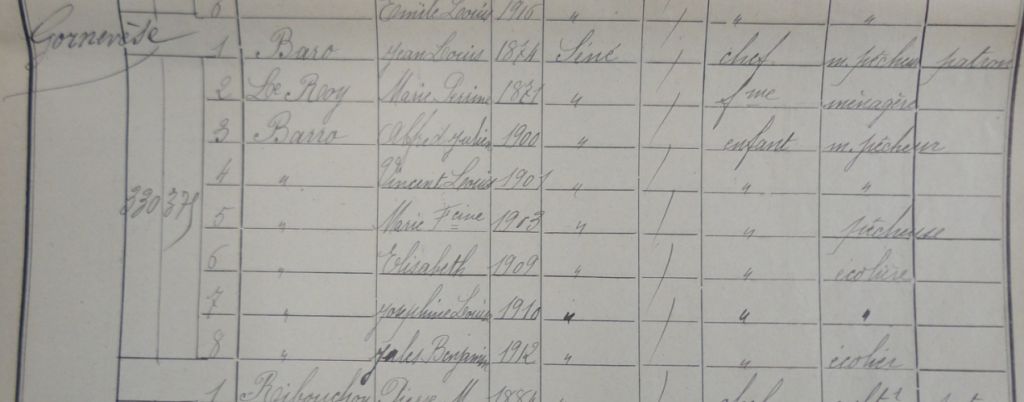 6 Emile Louis 1916 " / " "
Gornevèse
1 Baro Jean Louis 1874 Séné / chef m. pêcheur patron
2 Le Roy Marie 1871 " / fme ménagère
3 Barro Alfred Julien 1900 " / enfant m. pêcheur
4 " Vincent Louis 1901 " / " "
230 375
5 " Marie Fcine 1903 " / " pêcheuse
6 " Elisabeth 1909 " / " écolière
7 " Joséphine Louise 1910 " / " "
8 " Jules Benjamin 1912 " / " écolier
1 Ribouchon Pierre M 1884